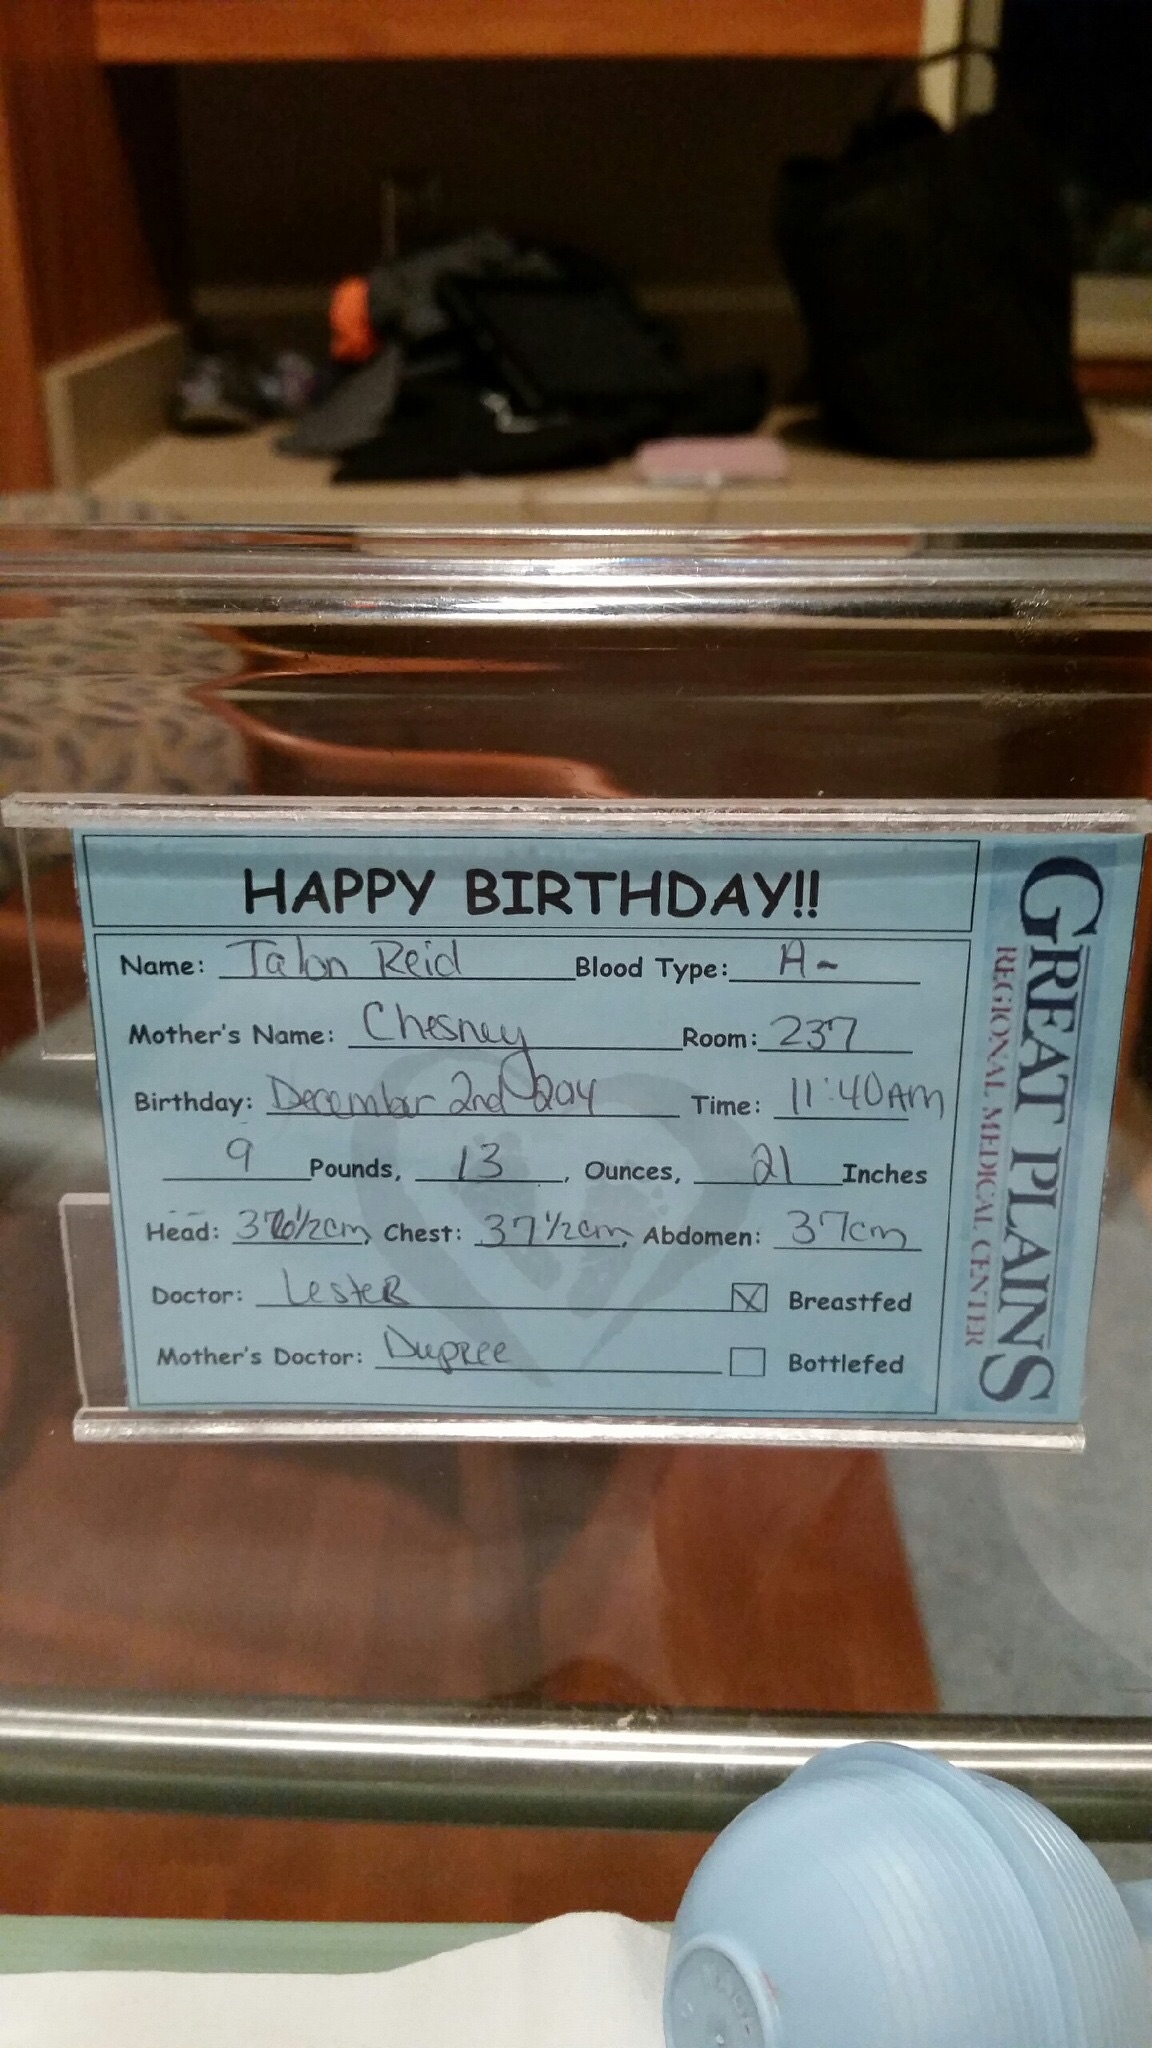 HAPPY BIRTHDAY!!
Name: Talon Reid Blood Type: A-
Mother's Name: Chesney Room: 237
Birthday: December 2nd 2014 Time: 11:40AM
9 Pounds, 13, Ounces, 21 Inches
Head: 36 1/2cm, Chest: 37 1/2cm, Abdomen: 37cm
Doctor: Lester X Breastfed
Mother's Doctor: Dupree Bottlefed
GREAT PLAINS
REGIONAL MEDICAL CENTER